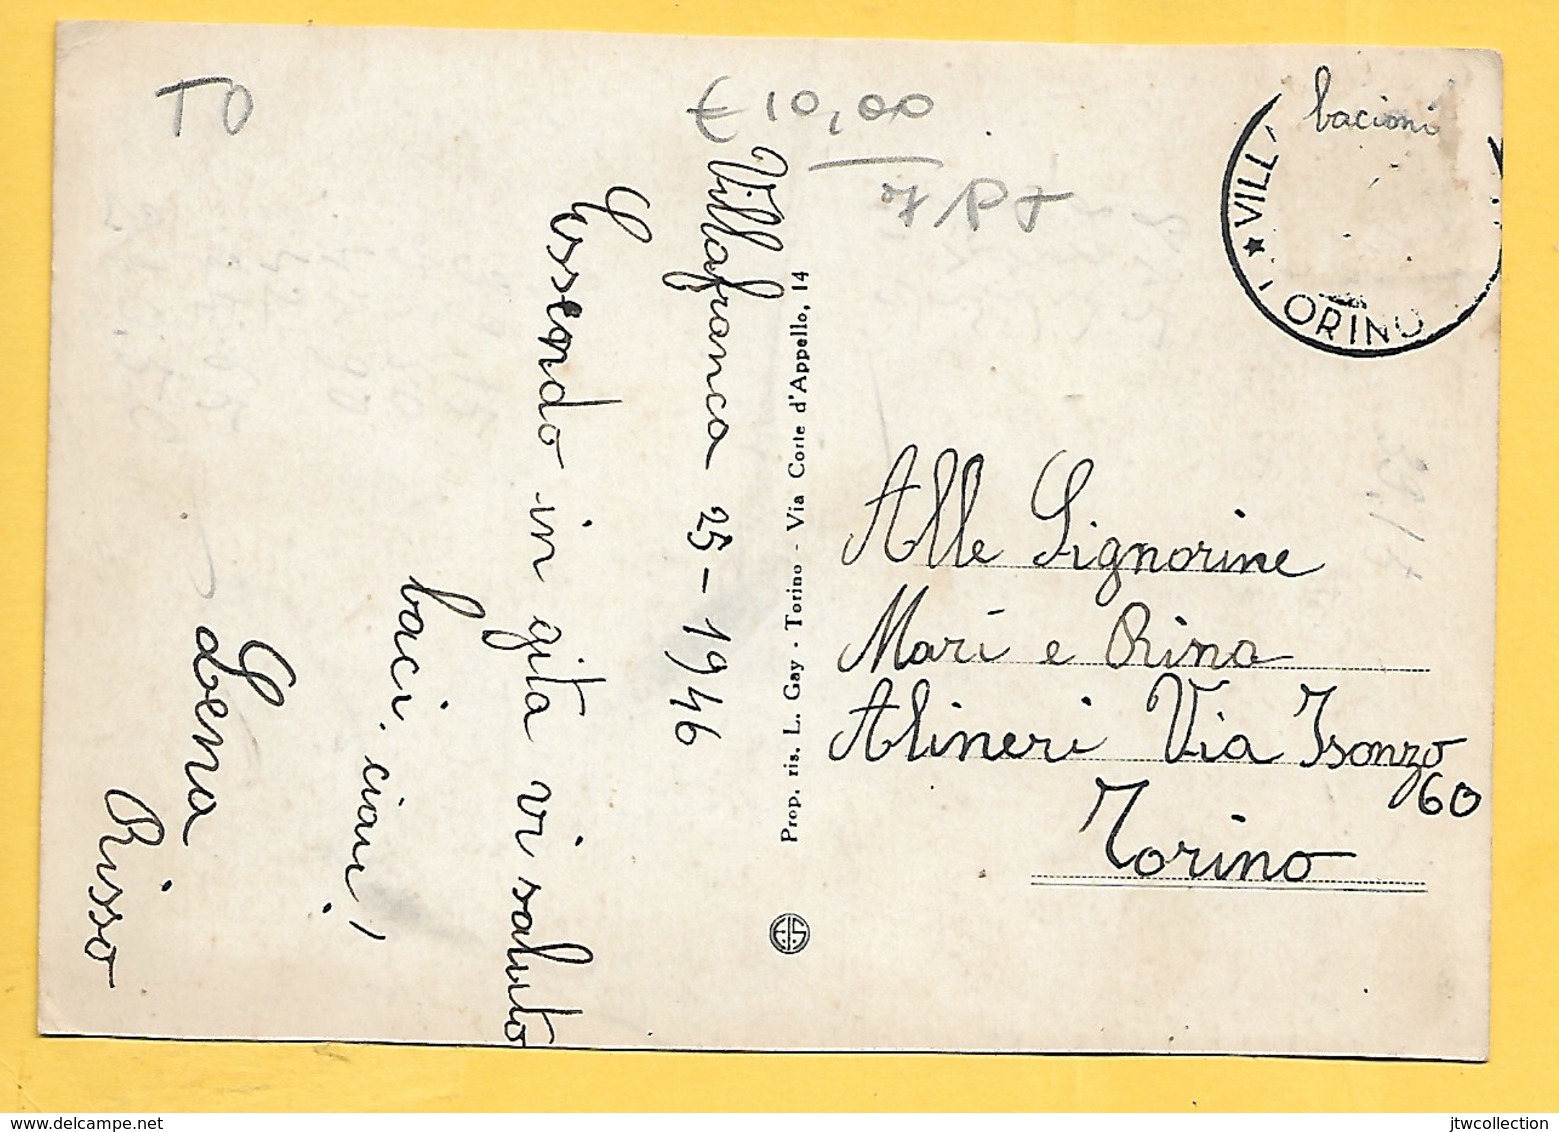 TO
€ 10,00
bacioni
★ VILL
TORINO
Villafranca 25-1946
Essendo in gita vi saluto
baci. ciau!
Lena
Risso
Prop. ris. L. Gay - Torino - Via Corte d'Appello, 14
Alle Signorine
Mari e Rina
Alineri Via Isonzo
60
Torino
jtwcollection